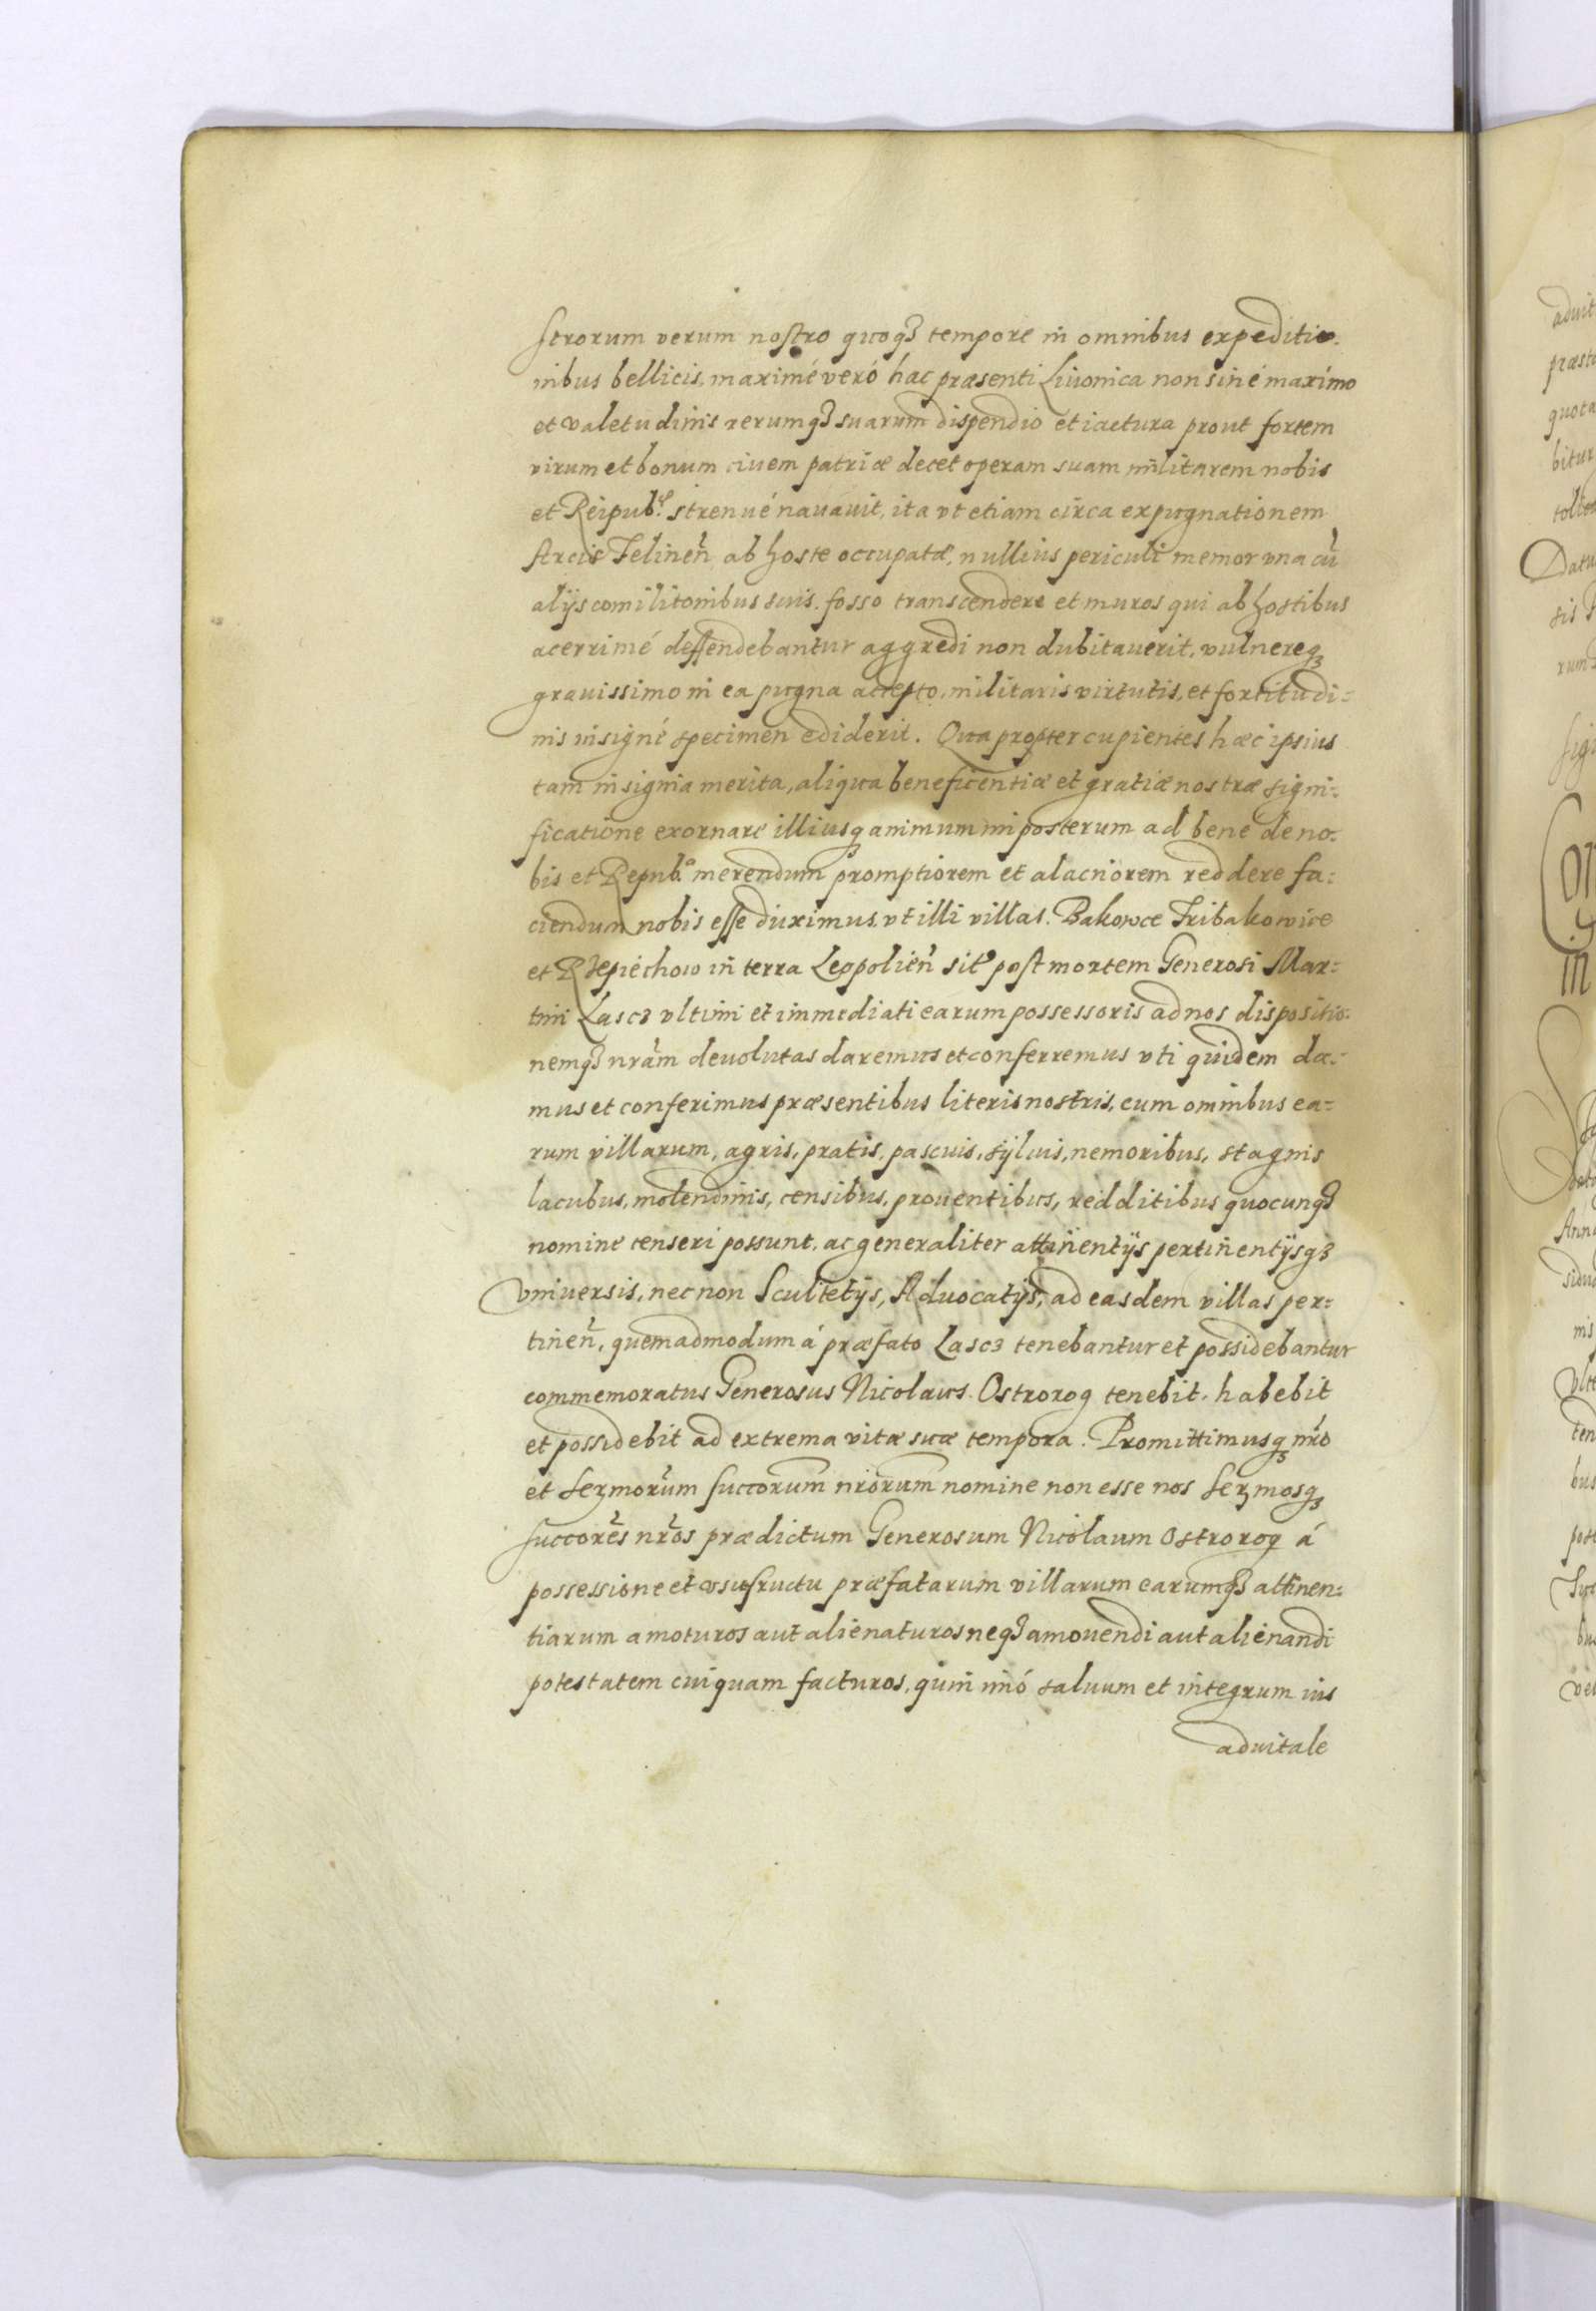 strorum verum nostro quoqꝫ tempore in omnibus expeditio-
nibus bellicis, maximé veró hac præsenti Livonica non siné maximo
et valetudinis rerumqꝫ suarum dispendio et iactura prout fortem
virum et bonum civem patriæ decet operam suam militarem nobis
et Reipub. strenué navavit, ita vt etiam circa expugnationem
Arcis Felineñ ab hoste occupatæ, nullius periculi memor vna cũ
alijs comilitonibus suis. fosso transcendere et muros qui ab hostibus
acerrimé deffendebantur aggredi non dubitauerit, vulnereqꝫ
grauissimo in ea pugna accepto, militaris virtutis, et fortitudi=
nis insigné specimen ediderit. Qua propter cupientes hæc ipsius
tam insignia merita, aliqua beneficentiæ et gratiæ nostræ signi-
ficatione exornare illiusqꝫ animum in posterum ad bene de no-
bis et Repub.ᵃ merendum promptiorem et alacriorem reddere fa-
ciendum nobis esse duximus, vt illi villas. Bakowce Tribakowice
et Rzepiechow in terra Leopolieñ sit⁹ post mortem Generosi Mar=
tini Lascz vltimi et immediati earum possessoris ad nos dispositio-
nemqꝫ nr̃am deuolutas daremus et conferremus vti quidem da-
mus et conferimus præsentibus literis nostris, cum omnibus ea=
rum villarum, agris, pratis, pascuis, syluis, nemoribus, stagnis
lacubus, molendinis, censibus, prouentibus, redditibus quocunqꝫ
nomine censeri possunt, ac generaliter attinentijs pertinentijsqꝫ
vniversis, nec non Scultetijs, Aduocatijs, ad easdem villas per=
tineñ, quemadmodum á præfato Lascz tenebantur et possidebantur
commemoratus Generosus Nicolaus. Ostrorog tenebit, habebit
et possidebit ad extrema vitæ suæ tempora. Promittimusqꝫ nr̃o
et Sermor̃um succorum nr̃orum nomine non esse nos Sermosqꝫ
succor̃es nr̃os prædictum Generosum Nicolaum Ostrorog á
possessione et vsufructu præfatarum villarum earumqꝫ attinen=
tiarum amoturos aut alienaturos neqꝫ amouendi aut alienandi
potestatem cuiquam facturos, quin imó saluum et integrum ius
aduitale